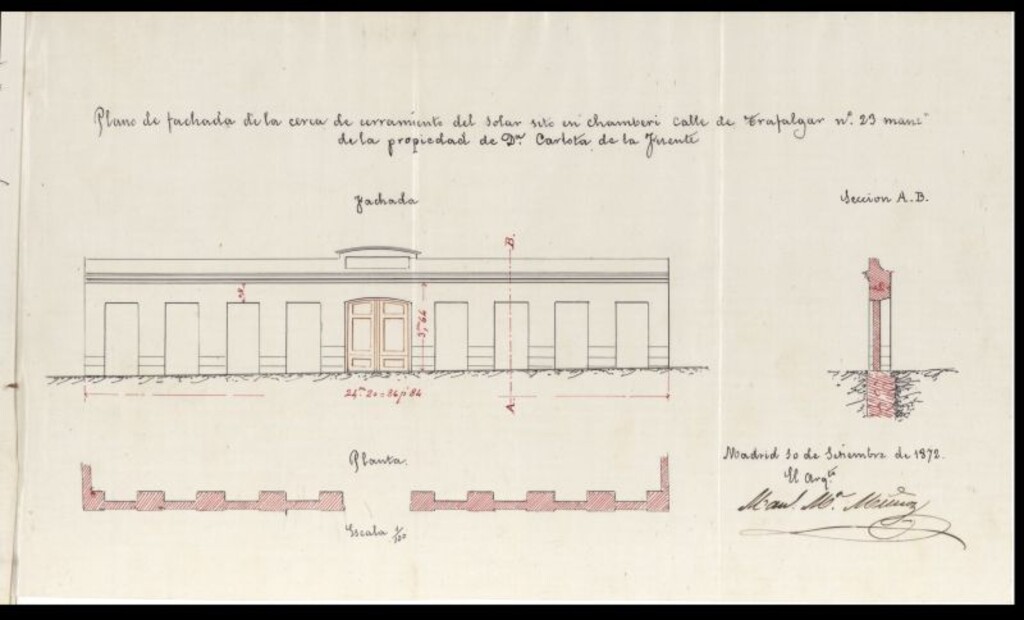 Plano de fachada de la cerca de cerramiento del solar sito en chamberi calle de Trafalgar nº. 23 manzª
de la propiedad de Dª. Carlota de la Fuente
Fachada
Seccion A.B.
B.
3,m 64
A.
24,m 20 = 86 p 84
Planta.
Escala 1/100
Madrid 10 de Setiembre de 1872.
El Arqto
Manl. Mª. Muñoz